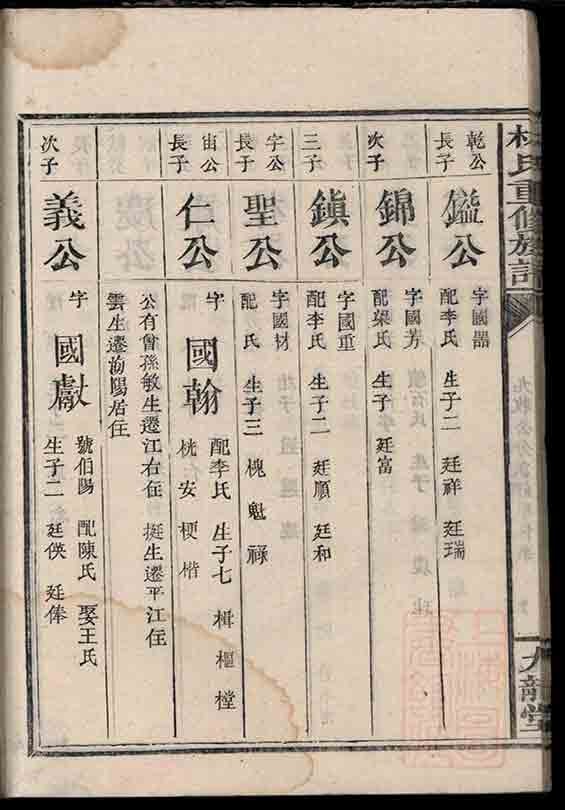 氏重修族譜
乾公
長子
鎰公
字國器
配李氏 生子二 廷祥 廷瑞
次子
錦公
字國芳
配梁氏 生子 廷富
三子
鎮公
字國重
配李氏 生子二 廷順 廷和
字公
長子
聖公
字國材
配 氏 生子三 槐 魁 祿
宙公
長子
仁公
字 國翰
配李氏 生子七 楫 樞 樘
桄 安 梗 楷
公有曾孫敏生遷江右住 挺生遷平江住
雲生遷 陽居住
次子
義公
字 國獻
號伯陽 配陳氏 娶王氏
生子二 廷俠 廷俸